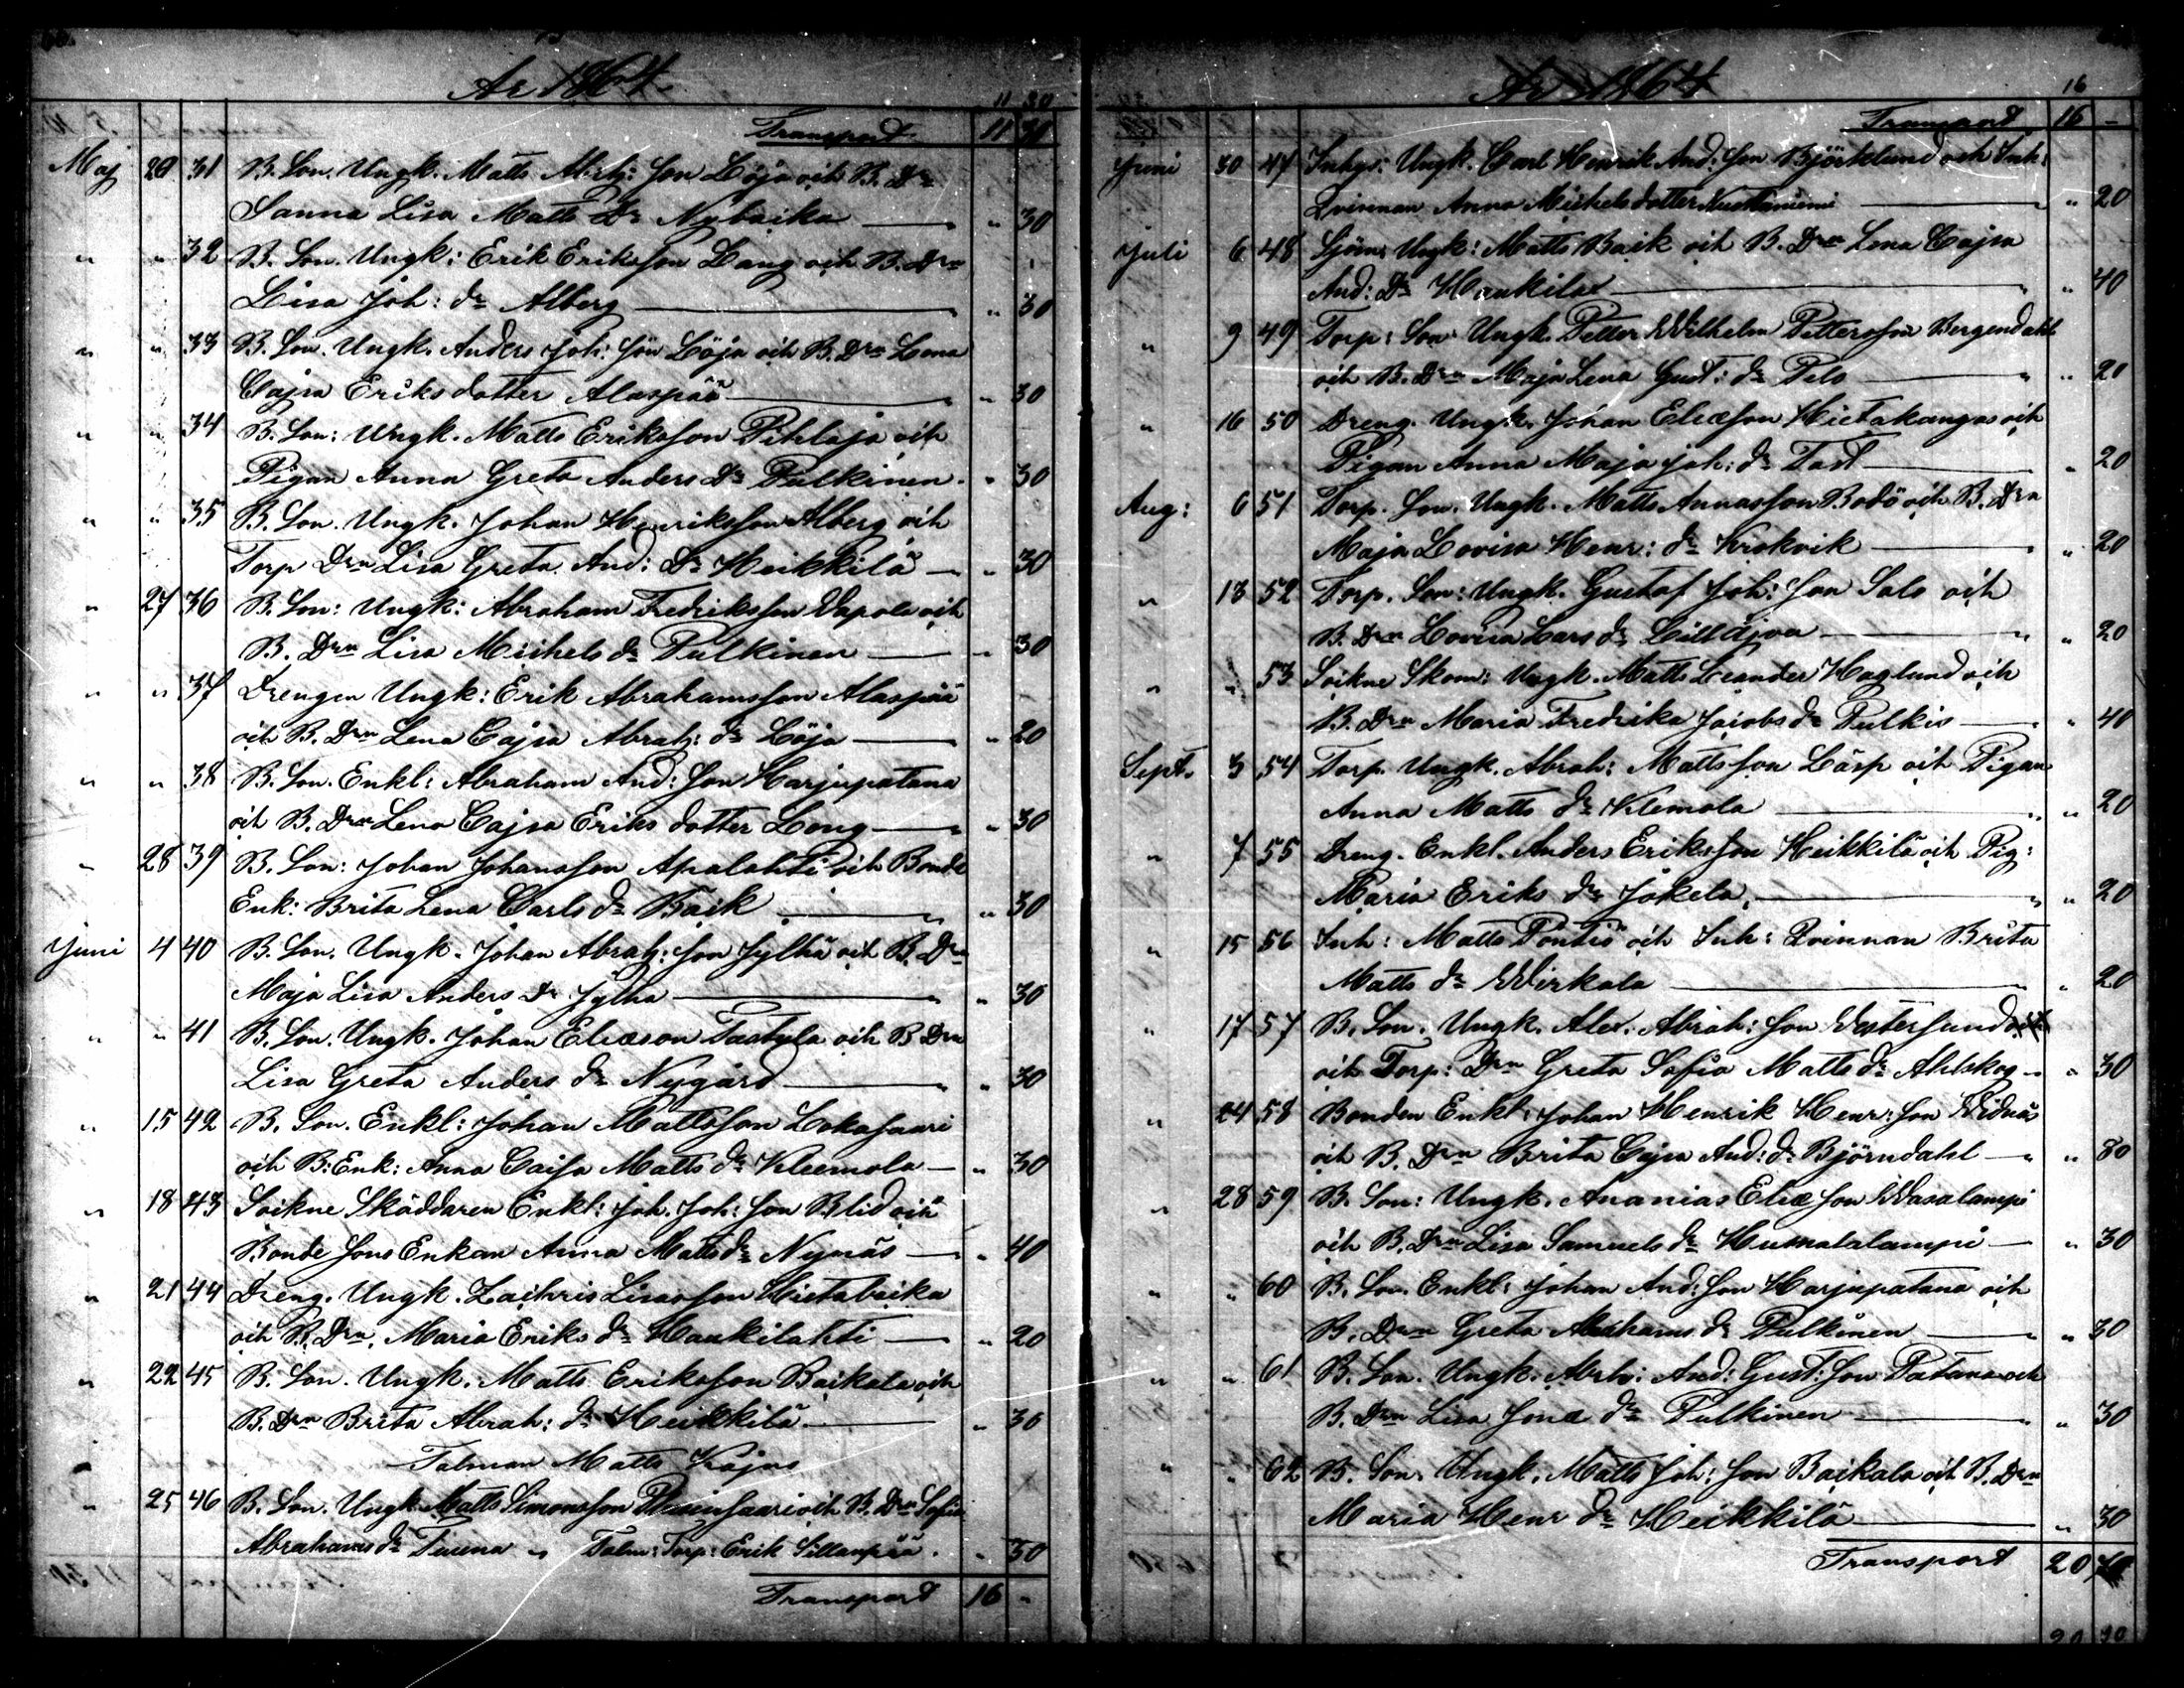 År 1864
11 30
Transport 11 30
Maj 20 31 B. Son. Ungk. Matts Abrah: Son Löja och B. Drn
Sanna Lisa Matts Dr Nybacka " 30
" " 32 B. Son. Ungk: Erik Eriksson Lang och B. Drn
Lisa Joh: dr Alberg " 30
" " 33 B. Son. Ungk. Anders Joh: Son Löja och B. Drn Lena
Cajsa Eriksdotter Alaspää " 30
" " 34 B. Son: Ungk. Matts Eriksson Pihlaja och
Pigan Anna Greta Anders Dr Pulkinen " 30
" " 35 B. Son. Ungk. Johan Henriksson Alberg och
Torp Drn Lisa Greta And: Dr Heikkilä " 30
" 27 36 B. Son: Ungk: Abraham Fredriksson Wapola och
B. Drn Lisa Michels dr Pulkinen " 30
" " 37 Drengen Ungk: Erik Abrahamsson Alaspää
och B. Drn Lena Cajsa Abrah: dr Löja " 20
" " 38 B. Son. Enkl: Abraham And: Son Harjupatana
och B. Drn Lena Cajsa Eriks dotter Long " 30
" 28 39 B. Son: Johan Johansson Ahlahti och Bonde
Enk: Brita Lena Carls dr Kaik " 30
Juni 4 40 B. Son. Ungk. Johan Abrah: Son Jylhä och B. Drn
Maja Lisa Anders Dr Jylhä " 30
" " 41 B. Son. Ungk. Johan Eliæson Tastula och B Drn
Lisa Greta Anders dr Nygård " 30
" 15 42 B. Son. Enkl: Johan Mattsson Lokasaari
och B: Enk: Anna Caisa Matts dr Kleemola " 30
" 18 43 Sockne Skäddaren Enkl: Joh. Joh: Son Blid och
Bonde Sons Enkan Anna Matts dr Nynäs " 40
" 21 44 Dreng. Ungk. Zachris Lisasson Hietabacka
och B. Drn. Maria Eriks dr Haukilahti " 20
" 22 45 B. Son. Ungk. Matts Eriksson Backala och
B. Drn Brita Abrah: dr Heikkilä " 30
Talman Matts Kojas
" 25 46 B. Son. Ungk. Matts Simonsson och B. Drn Sofia
Abrahams dr Talm: Torp: Erik Sillanpää. " 30
Transport 16 -
År 1864
16
Transport 16 -
Juni 30 47 Inhys: Ungk. Carl Henrik And: Son Björklund och Inh:
Qvinnan Anna Michelsdotter " 20
Juli 6 48 Sjöm: Ungk: Matts Baik och B. Drn Lena Cajsa
And: Dr Haukilax " 40
" 9 49 Torp: Son Ungk. Petter Wilhelm Pettersson Bergendahl
och B. Drn Maja Lena Gust: dr Pelo " 20
" 16 50 Dreng. Ungk. Johan Eliæson Hietakangas och
Pigan Anna Maja Joh: dr Tast " 20
Aug: 6 51 Torp. Son. Ungk. Matts Annasson Bodö och B. Drn
Maja Lovisa Henr: dr Krokvik " 20
" 13 52 Torp. Son: Ungk. Gustaf Joh: Son Salo och
B. Drn Lovisa Lars dr Lilldjva " 20
" " 53 Sockne Skom: Ungk. Matts Leander Haglund och
B. Drn Maria Fredrika Jacobs dr Pulkis " 40
Sept. 3 54 Torp. Ungk. Abrah: Mattsson Läsp och Pigan
Anna Matts dr Klemola " 20
" 7 55 Dreng. Enkl. Anders Eriksson Heikkilä och Pig:
Maria Eriks dr Jokela " 20
" 15 56 Inh: Matts Pöntiö och Inh: Qvinnan Brita
Matts dr Wirkala " 20
" 17 57 B. Son. Ungk. Alex. Abrah: Son Westersund
och Torp: Drn Greta Sofia Matts dr Ahlskog " 30
" 24 58 Bonden Enkl: Johan Henrik Henr: Son Widnäs
och B. Drn Brita Cajsa And: dr Björndahl " 80
" 28 59 B. Son: Ungk. Ananias Eliæson Wasalampi
och B. Drn Lisa Samuels dr Humalalampi " 30
" " 60 B. Son. Enkl: Johan And: Son Harjupatana och
B. Drn Greta Abrahams dr Pulkinen " 30
" " 61 B. Son. Ungk. Abrh: And: Gust: Son Patana och
B. Drn Lisa Jonæ dr Pulkinen " 30
" " 62 B. Son. Ungk. Matts Joh: Son Backala och B. Drn
Maria Henr dr Heikkilä " 30
Transport 20